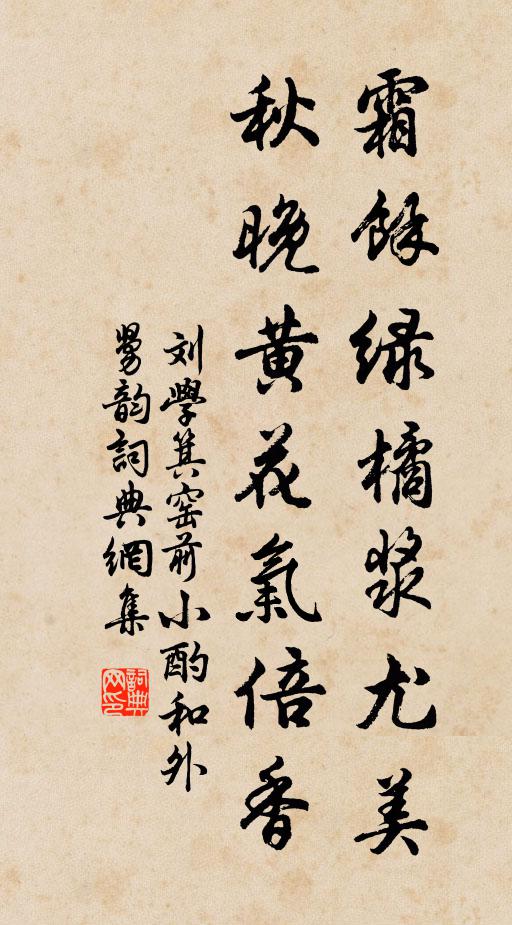 霜餘緑橘漿尤美
秋晚黄花氣倍香
刘學箕窑前小酌和外
舅韵詞典網集
詞典網印